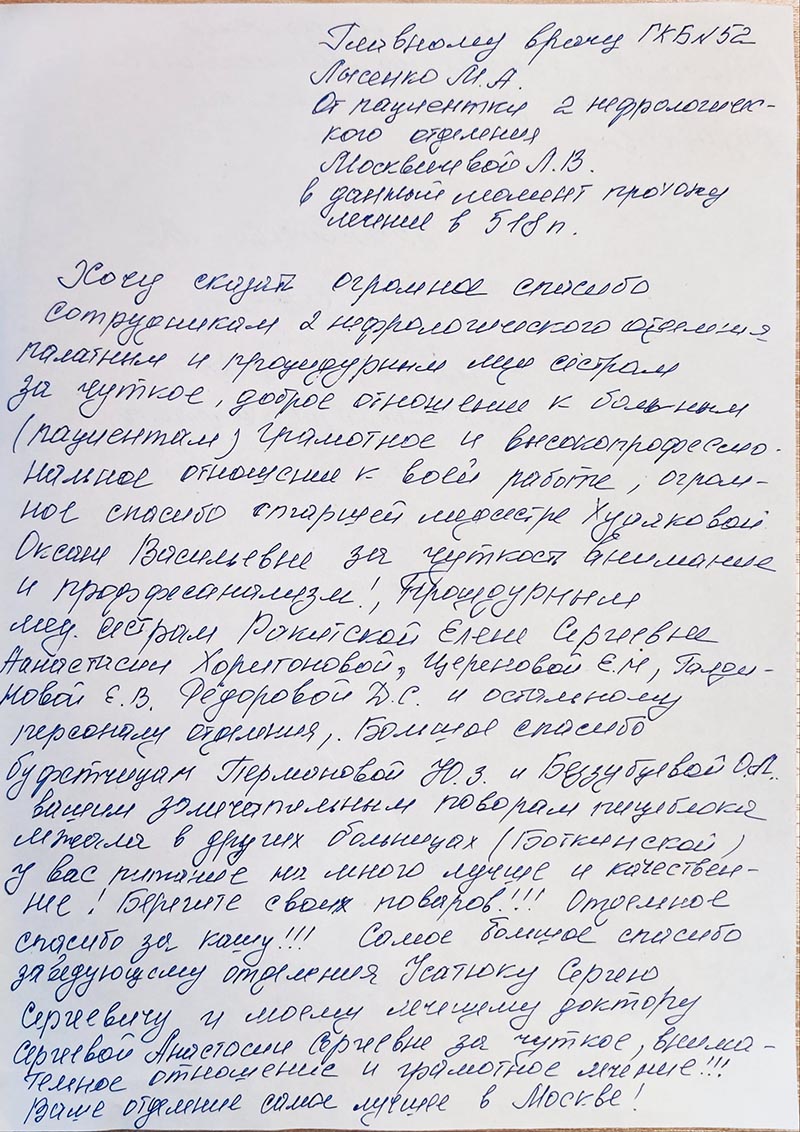 Главному врачу ГКБ №52
Лысенко М.А.
От пациентки 2 нефрологичес-
кого отделения
Москвичевой Л.В.
в данный момент прохожу
лечение в 518 п.
Хочу сказать огромное спасибо
сотрудникам 2 нефрологического отделения
палатным и процедурным мед сёстрам
за чуткое, доброе отношение к больным
(пациентам) грамотное и высокопрофессио-
нальное отношение к своей работе, огром-
ное спасибо старшей медсестре Худяковой
Оксане Васильевне за чуткость внимание
и профессанализм!, Процедурным
мед. сёстрам Ракитской Елене Сергиевне
Анастасии Харитоновой, Цереновой Е.Н,
новой Е.В. Фёдоровой Д.С. и остальному
персоналу отделения,. Большое спасибо
буфетчицам Пермановой Ю.З. и Беззубцевой О.Л.
вашим замечательным поварам пищеблока
лежала в других больницах (Боткинской)
у вас питание на много лучше и качествен-
ние! Берегите своих поваров!!! Отдельное
спасибо за кашу!!! Самое большое спасибо
заведующему отделения Усатюку Сергею
Сергиевичу и моему лечещему доктору
Сергиевой Анастасии Сергиевне за чуткое, внима-
тельное отношение и грамотное лечение!!!
Ваше отделение самое лучшее в Москве!